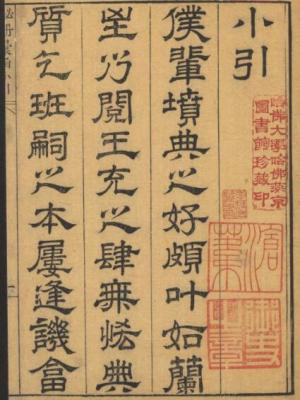 小引
僕輩墳典之好頗叶如蘭
閱王充之肆無恡典
質乞班嗣之本屢逢譏
哈佛大學哈佛燕京
圖書館珍藏印